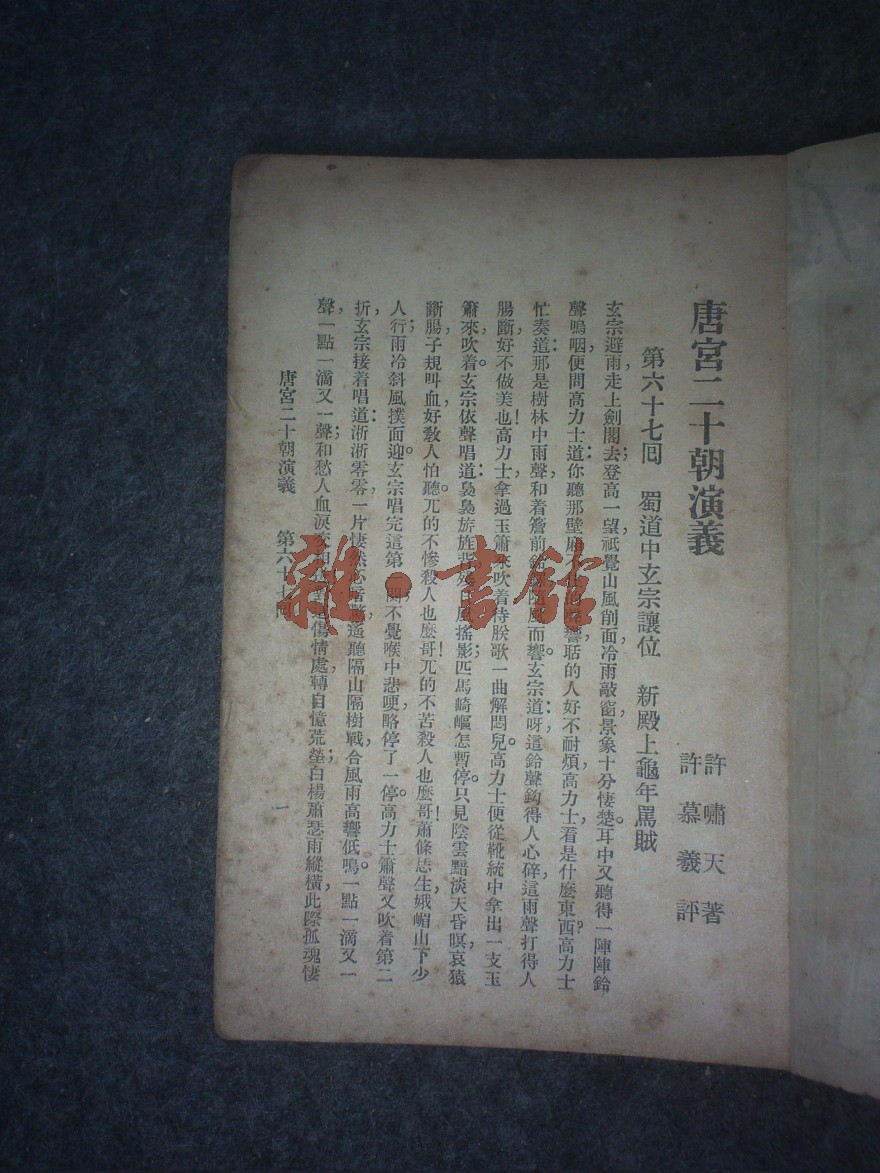 唐宮二十朝演義
許嘯天著
許慕羲評
第六十七回　蜀道中玄宗讓位　新殿上龜年罵賊
玄宗避雨，走上劍閣去；登高一望，祇覺山風削面，冷雨敲窗，景象十分悽楚。耳中又聽得一陣陣鈴
聲嗚咽，便問高力士道：你聽那壁廂聒的人好不耐煩，高力士，看是什麼東西？高力士
忙奏道：那是樹林中雨聲，和着簷前鈴隨風而響。玄宗道：呀，這鈴聲鈎得人心碎，這雨聲打得人
腸斷，好不做美也！高力士，拿過玉簫來吹着，待朕歌一曲解悶兒。高力士便從靴統中拿出一支玉
簫來，吹着。玄宗依聲唱道：裊裊旂旌背殘日，風搖影；匹馬崎嶇怎暫停。只見陰雲黯淡天昏暝，哀猿
斷腸，子規叫血，好敎人怕聽。兀的不慘殺人也麼哥！兀的不苦殺人也麼哥！蕭條恁生，娥嵋山下少
人行；雨冷斜風撲面迎。玄宗唱完這第一闋，不覺喉中悲哽，略停了一停。高力士簫聲又吹着第二
折，玄宗接着唱道：淅淅零零，一片悽然心，遙聽隔山隔樹，戰合風雨，高響低鳴。一點一滴又一
聲，一點一滴又一聲，和愁人血淚；傷情處，轉自憶荒塋；白楊蕭瑟雨縱橫，此際孤魂悽
唐宮二十朝演義　第六十七回
一
雜·書館